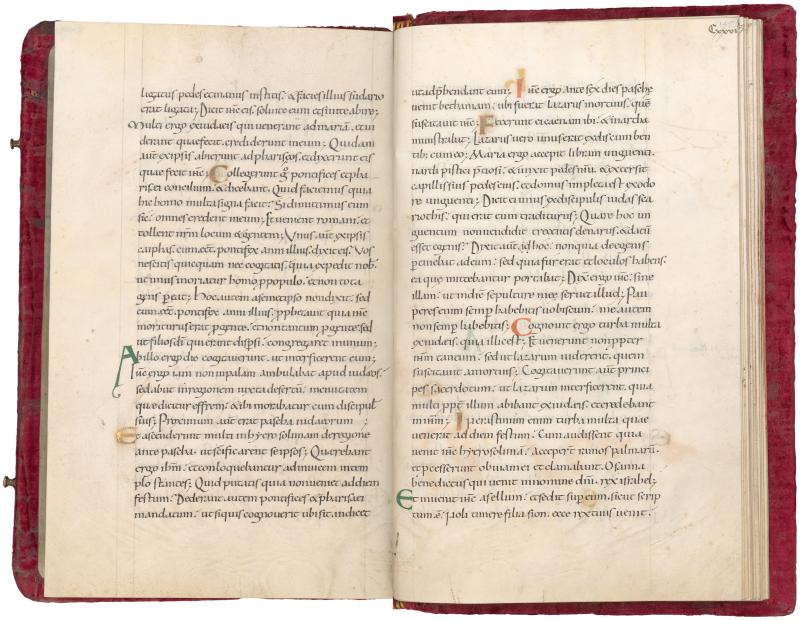 ligatus pedes et manus institis. & facies illius sudario
erat ligata; Dicit ih̄c eis. solvite eum et sinite abire;
Multi ergo ex iudaeis qui venerant ad mariā. et vi
derant quae fecit. crediderunt in eum; Quidam
aut̄ ex ipsis abierunt ad phariseos. et dixerunt eis
quae fecit ih̄c; Collegerunt g̊ pontifices et pha
risei concilium. & dicebant. Quid facimus quia
hic homo multa signa facit; Si dimittimus eum
sic. omnes credent in eum; Et venient romani. et
tollent nr̄m locum & gentem; Unus aut̄ ex ipsis
caiphas. cum eēt pontifex anni illius. dixit eis. Vos
nescitis quicquam nec cogitatis. quia expedit nob̄.
ut unus moriatur homo p̱ populo. et non tota
gens p̱eat; Hoc autem a semetipso non dixit. sed
cum eēt pontifex anni illius. pphetavit quia ih̄c
moriturus erat p̱ gente. et non tantum p̱ gente. sed
ut filios dī qui erant disp̱si. congregaret in unum;
Ab illo ergo die cogitaverunt. ut interficerent eum;
ih̄c ergo iam non in palam ambulabat apud iudaeos.
sed abiit in regionem iuxta desertū. in civitatem
quae dicitur effrem. & ibi morabatur cum discipul̄
suis; Proximum aut̄ erat pascha iudaeorum;
Et ascenderunt multi in hyerosolimam de regione
ante pascha. ut scificarent seipsos; Querebant
ergo ih̄m. et conloquebantur ad invicem in tem
plo stantes; Quid putatis quia non venit ad diem
festum; Dederant autem pontifices & pharisaei
mandatum. ut si quis cognoverit ubi sit. indicet
Cxxvi
ut adp̱hendant eum; Ih̄c ergo ante sex dies paschę
venit bethaniam. ubi fuerat lazarus mortuus. quē
suscitavit ih̄c; Fecerunt ei caenam ibi. & martha
ministrabat; Lazarus vero unus erat ex discum ben
tib; cum eo; Maria ergo accepit libram unguenti.
nardi pistici p̄tiosi. & unxit pedes ih̄u. & extersit
capillis suis pedes eius. et domus impleta est ex odo
re unguenti; Dicit ei unus ex discipulis iudas sca
riothis. qui erat eum traditurus; Quare hoc un
guentum non vendidit trecentis denariis. & datū
esset egenis; Dixit aut̄ hoc. non quia de egenis
p̱tinebat ad eum. sed quia fur erat et loculos habens.
ea quae mittebantur portabat; Dix̄ ergo ih̄c. sine
illam. ut in diē sepulturę meę servet illud; Pau
peres enim semp̱ habebitis vobiscum. me autem
non semp̱ habebitis; Cognovit ergo turba multa
ex iudaeis. quia illic est; Et venerunt non ppter
ih̄m tantum. sed ut lazarum viderent. quem
suscitavit a mortuis; Cogitaverunt aut̄ princi
pes sacerdotum. ut lazarum interficerent. quia
multi ppt̄ illum abibant ex iudaeis. et credebant
in ih̄m; In crastinum enim turba multa quae
venerat ad diem festum. Cum audissent quia
venit ih̄c hyerosolimā. acceperī ramos palmarū.
et pcesserunt obviam ei et clamabant. Osanna
benedictus qui venit in nomine dn̄i. rex israhel;
Et invenit ih̄c asellum. et sedit sup̱ eum. sicut scrip
tum ē. Noli timere filia sion. ecce rex tuus venit.